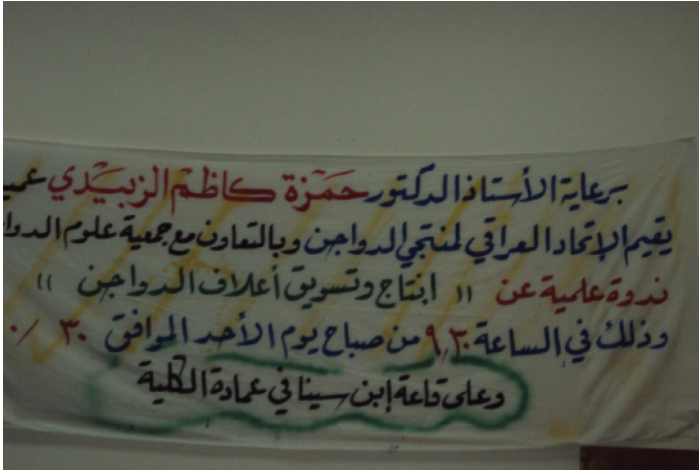 برعاية الأستاذ الدكتور حمزة كاظم الزبيدي
يقيم الإتحاد العراقي لمنتجي الدواجن وبالتعاون مع جمعية علوم
ندوة علمية عن (( إنتاج وتسويق أعلاف الدواجن ))
وذلك في الساعة ٩,٣٠ من صباح يوم الأحد الموافق ٣٠ /
وعلى قاعة إبن سينا في عمادة الكلية